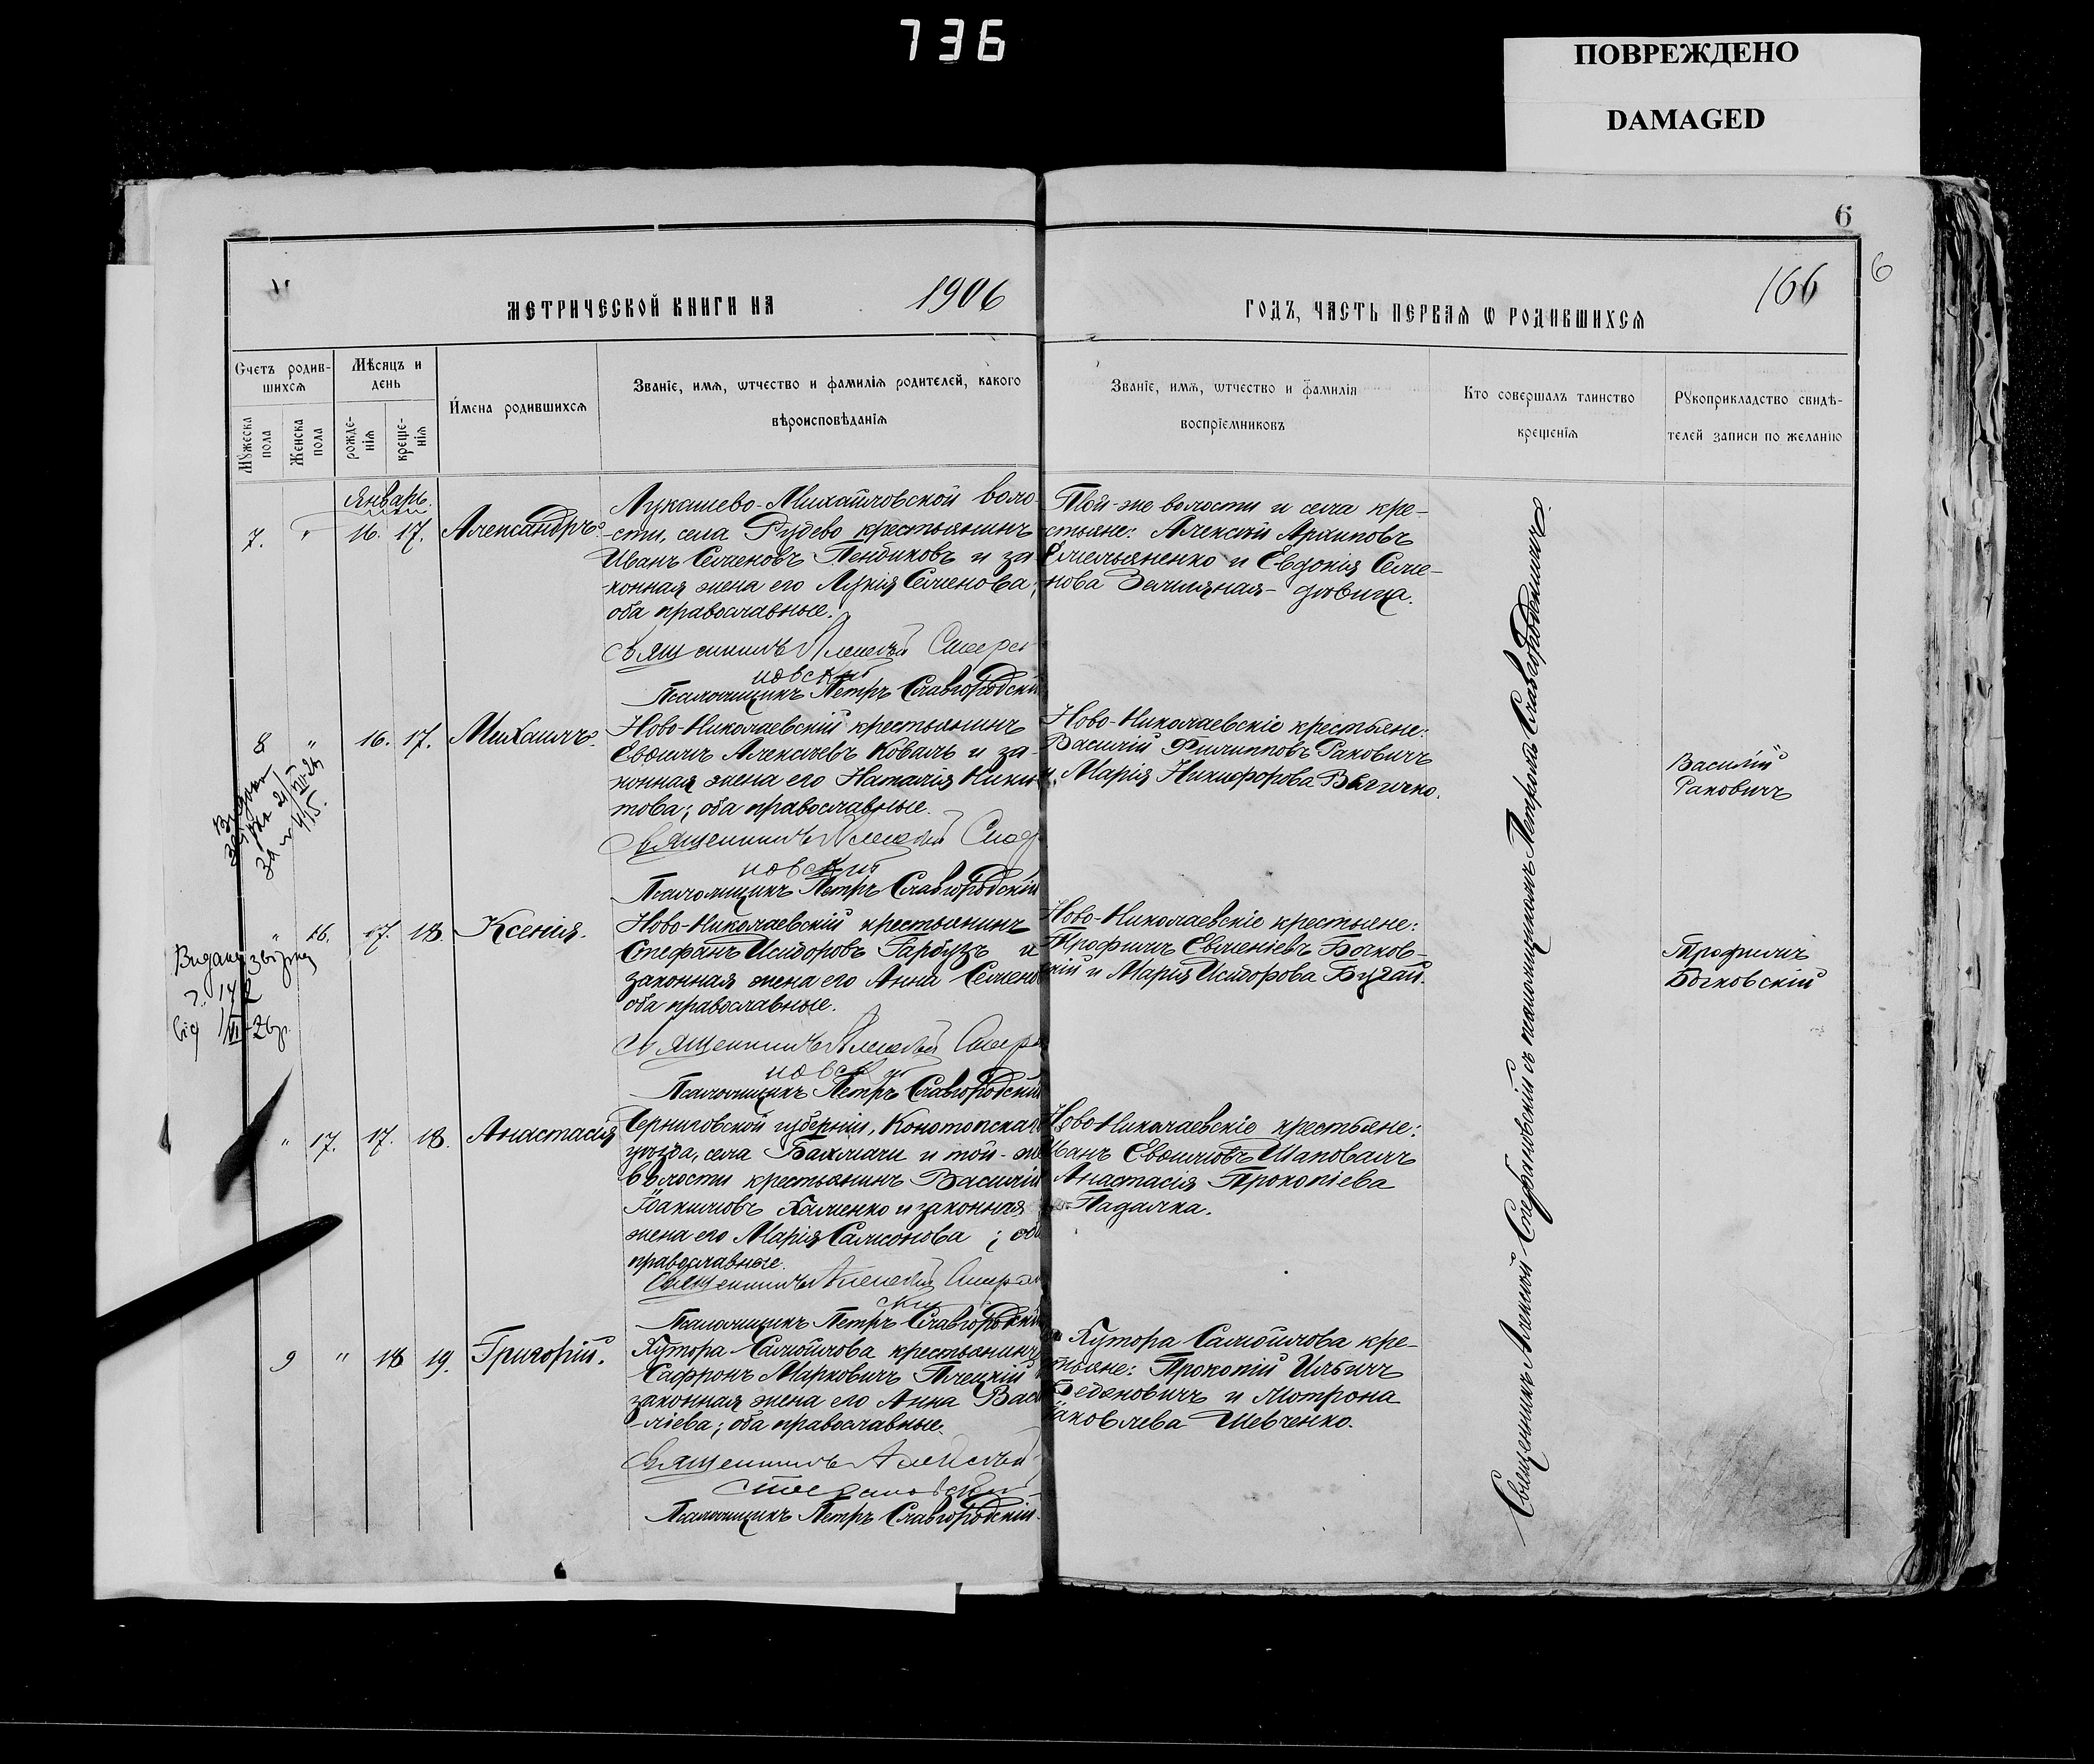 736
ПОВРЕЖДЕНО
DAMAGED
6
6
166
МЕТРИЧЕСКОЙ КНИГИ НА 1906
ГОДЪ, ЧАСТЬ ПЕРВАЯ Ѡ РОДИВШИХСЯ
Счетъ родив-
шихся
Мужеска пола
Женска пола
Мѣсяцъ и
день
рожде-
нія
креще-
нія
Имена родившихся
Званіе, имя, ѿчество и фамилія родителей, какого
вѣроисповѣданія
Званіе, имя, ѿчество и фамилія
воспріемниковъ
Кто совершалъ таинство
крещенія
Рукоприкладство свидѣ-
телей записи по желанію
Январь
7. " 16. 17. Александръ.
Лукашево-Михайловской воло-
сти, села Рудево крестьянинъ
Иванъ Семеновъ Пендиковъ и за-
конная жена его Лукія Семенова;
оба православные.
Священникъ Алексѣй Стефа
новскій
Псаломщикъ Петръ Славгородскій
Той-же волости и села кре-
стьяне: Алексѣй Архиповъ
Емельяненко и Евдокія Семе-
нова Земляная - дѣвица.
8 " 16. 17. Михаилъ.
Ново-Николаевскій крестьянинъ
Евѳимъ Алексѣевъ Коваль и за-
конная жена его Наталія Ники-
това; оба православные.
Священникъ Алексѣй Стефа
новскій
Псаломщикъ Петръ Славгородскій
Ново-Николаевскіе крестьяне:
Василій Филипповъ Раковичъ
и Марія Никифорова Величко.
Василій
Раковичъ
За № 415.
" 16. 17. 18. Ксенія.
Ново-Николаевскій крестьянинъ
Стефанъ Исидоровъ Гарбузъ и
законная жена его Анна Семено
оба православные.
Священникъ Алексѣй Стефа
новскій
Псаломщикъ Петръ Славгородскій
Ново-Николаевскіе крестьяне:
Трофимъ Евгеніевъ Бочков-
скій и Марія Исидорова Бугай.
Трофимъ
Бочковскій
Видана
від
" 17. 17. 18. Анастасія
Черниговской губерніи, Конотопскаго
уѣзда, села Бахмачи и той-же
волости крестьянинъ Василій
Іоакимовъ Хименко и законная
жена его Марія Самсонова; оба
православные.
Священникъ Алексѣй Стефанов
скій
Псаломщикъ Петръ Славгородскій
Ново-Николаевскіе крестьяне:
Иванъ Евѳимовъ Шаповалъ
Анастасія Прокопіева
Падалка.
9 " 18 19. Григорій.
Хутора Самойлова крестьянинъ
Сафронъ Марковичъ Плецкій
законная жена его Анна Васи
-ліева; оба православные.
Священникъ Алексѣй
Стефановскій
Псаломщикъ Петръ Славгородскій.
Хутора Самойлова кре-
стьяне: Прокопій Ильичъ
Беденовичъ и Мотрона
Яковлева Шевченко.
Священникъ Алексѣй Стефановскій съ псаломщикомъ Петромъ Славгородскимъ.